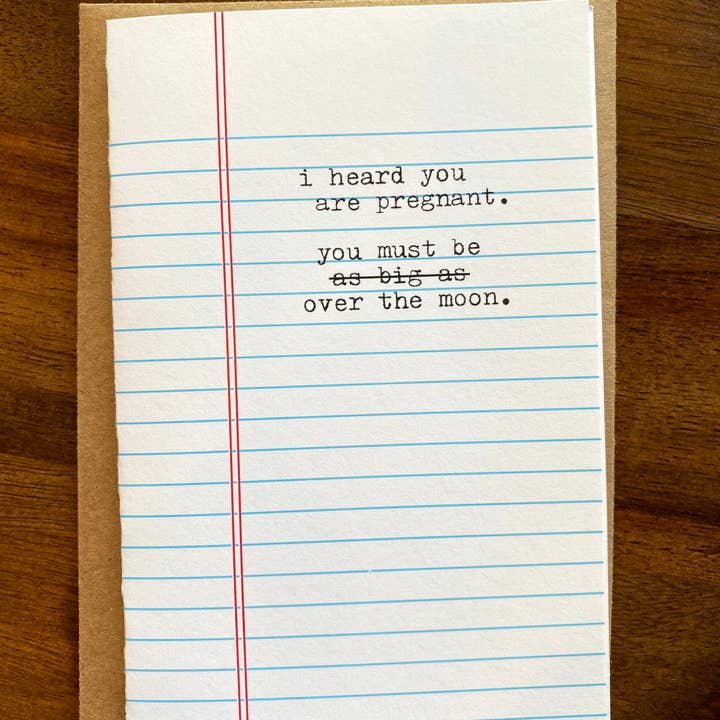 i heard you
are pregnant.
you must be
as big as
over the moon.